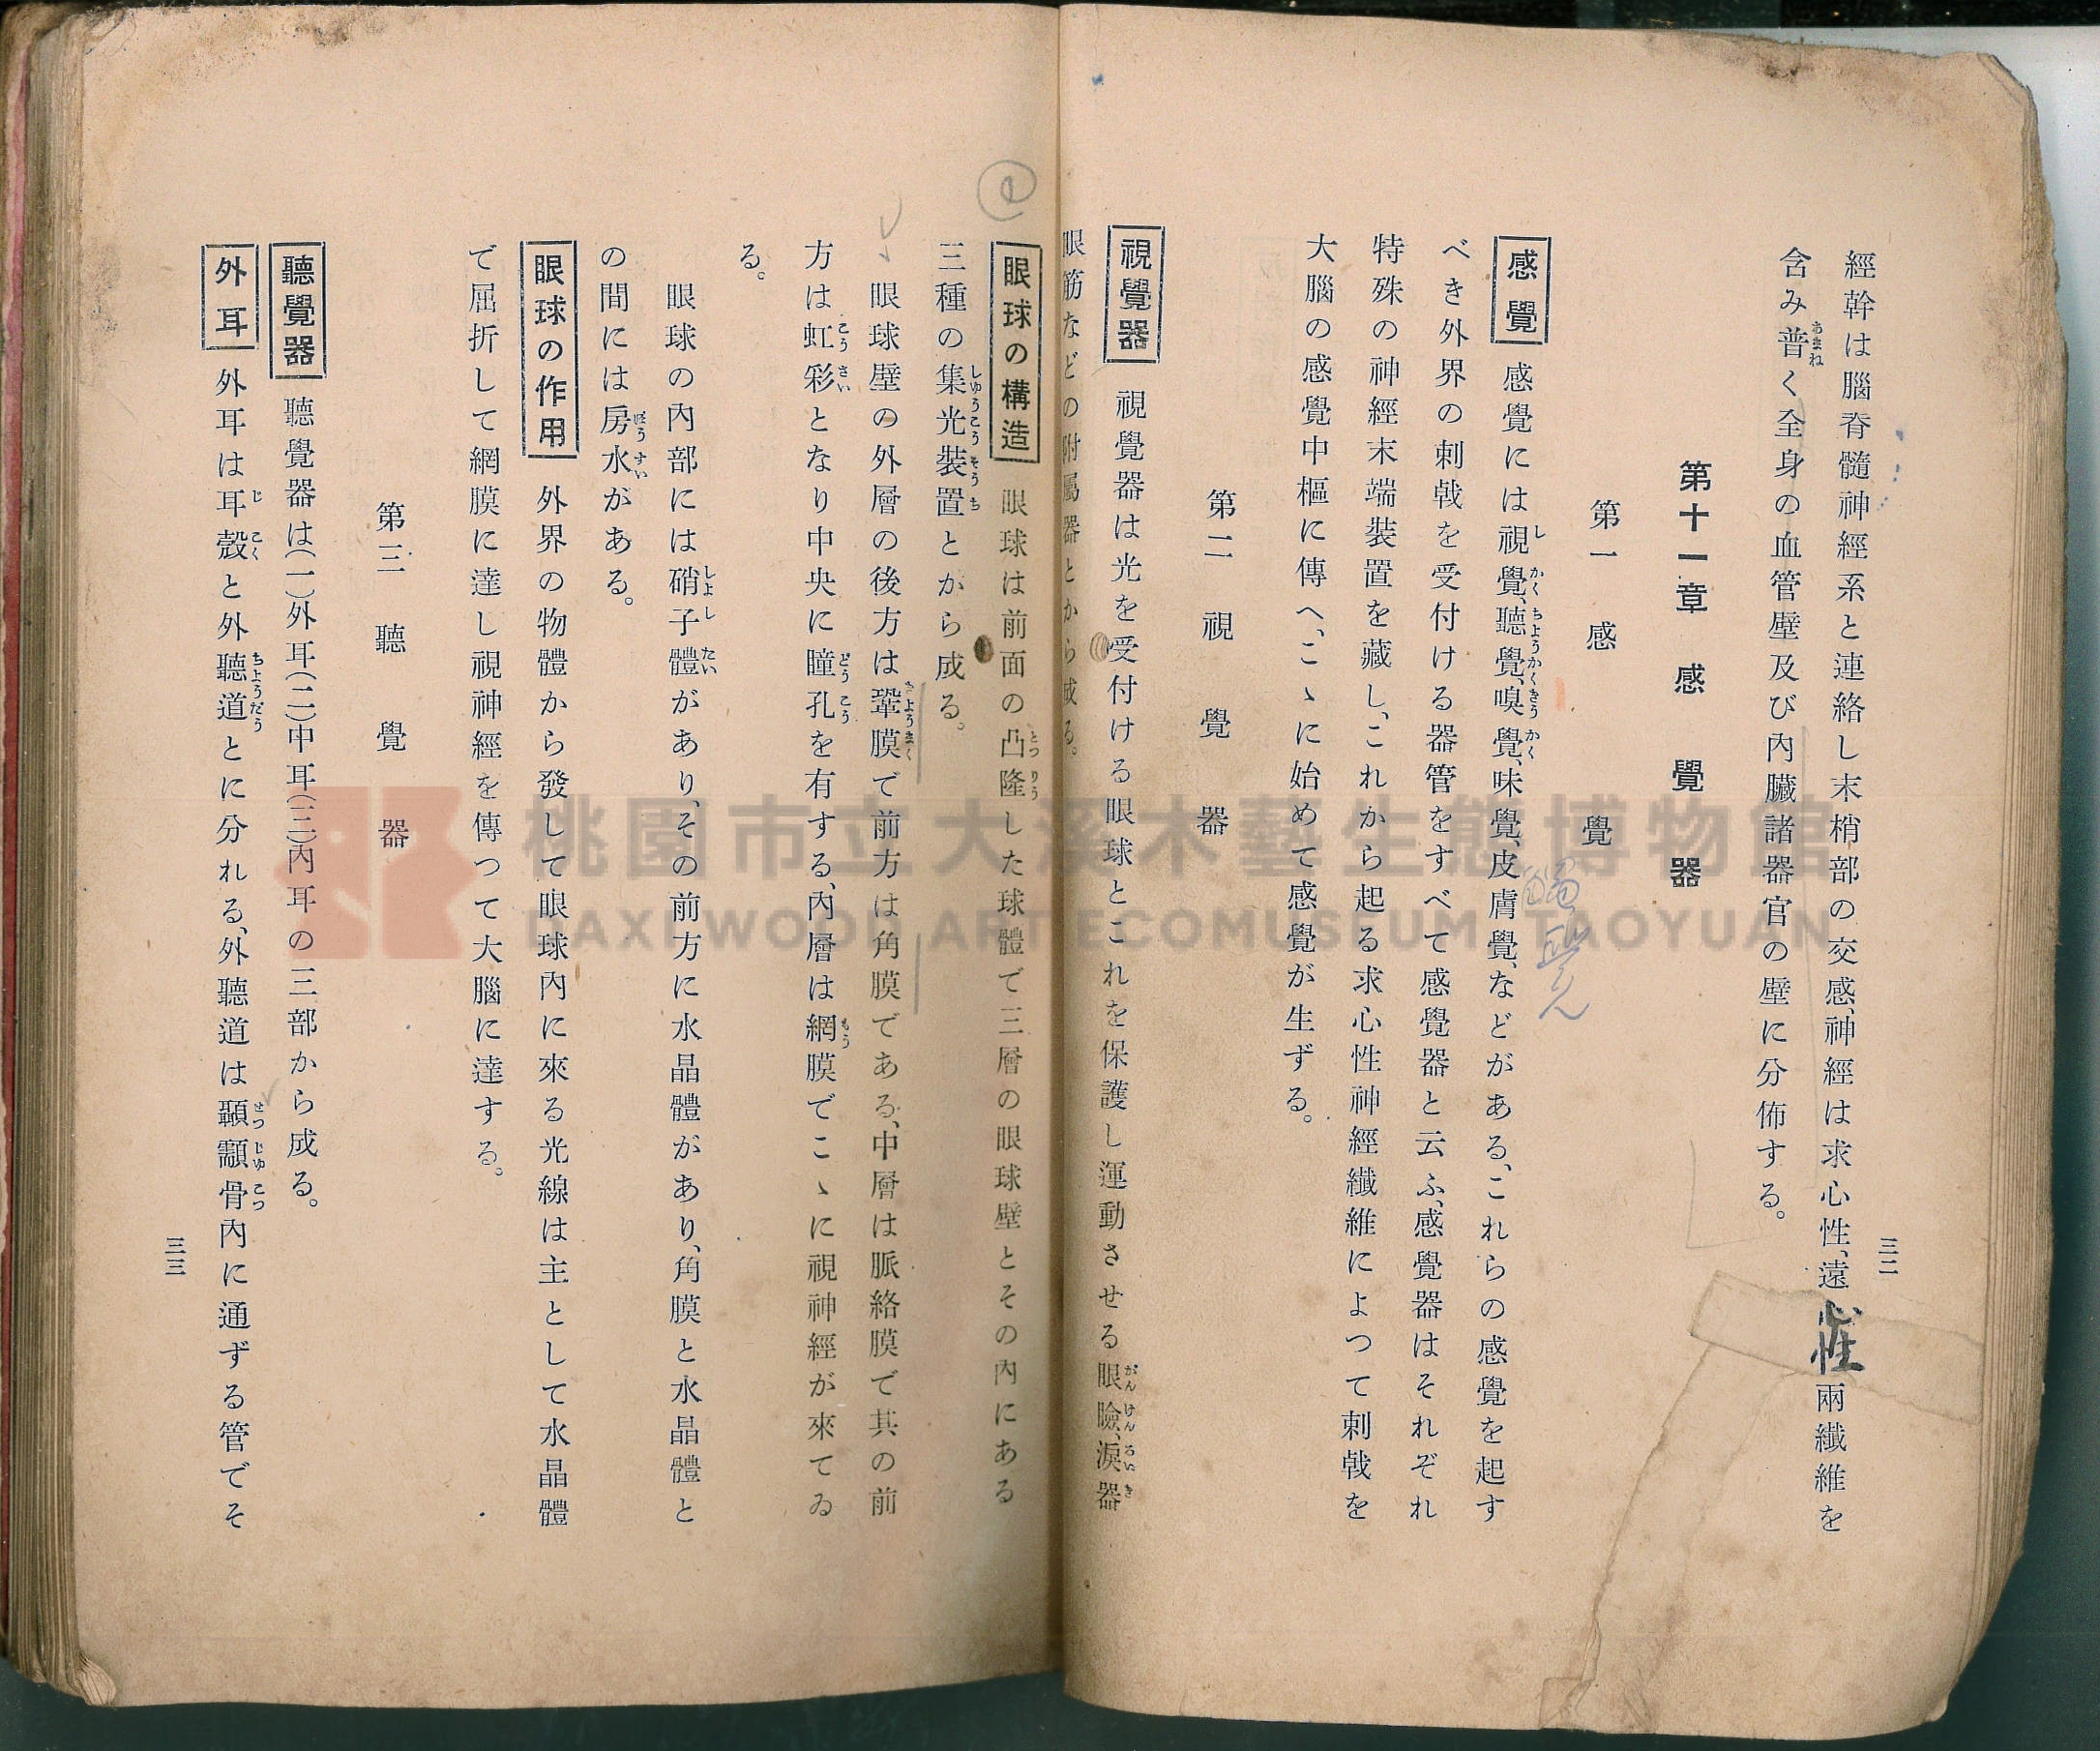 三二
經幹は腦脊髓神經系と連絡し末梢部の交感、神經は求心性、遠性兩纖維を
含み普く全身の血管壁及び內臟諸器官の壁に分佈する。
あまね
第十一章 感覺器
第一 感覺
感覺 感覺には視覺、聽覺、嗅覺、味覺、皮膚覺、などがある、これらの感覺を起す
し かく ちようかく きう かく
べき外界の刺戟を受付ける器管をすべて感覺器と云ふ、感覺器はそれぞれ
特殊の神經末端裝置を藏し、これから起る求心性神經纖維によつて刺戟を
大腦の感覺中樞に傳へ、こゝに始めて感覺が生ずる。
第二 視覺器
視覺器 視覺器は光を受付ける眼球とこれを保護し運動させる眼瞼、淚器
がん けん るい き
眼筋などの附屬器とから成る。
眼球の構造 眼球は前面の凸隆した球體で三層の眼球壁とその內にある
とつ りう
三種の集光裝置とから成る。
しゆうこう そう ち
眼球壁の外層の後方は鞏膜で前方は角膜である、中層は脈絡膜で其の前
きようまく
方は虹彩となり中央に瞳孔を有する、內層は網膜でこゝに視神經が來てゐ
こう さい どう こう もう
る。
眼球の內部には硝子體があり、その前方に水晶體があり、角膜と水晶體と
しよし たい
の間には房水がある。
ぼう すい
眼球の作用 外界の物體から發して眼球內に來る光線は主として水晶體
で屈折して網膜に達し視神經を傳つて大腦に達する。
第三 聽覺器
聽覺器 聽覺器は(一)外耳(二)中耳(三)內耳の三部から成る。
外耳 外耳は耳殼と外聽道とに分れる、外聽道は顳顬骨內に通ずる管でそ
じ こく ちようだう せつ じゆ こつ
三三
桃園市立大溪木藝生態博物館
DAXI WOOD ART ECOMUSEUM, TAOYUAN